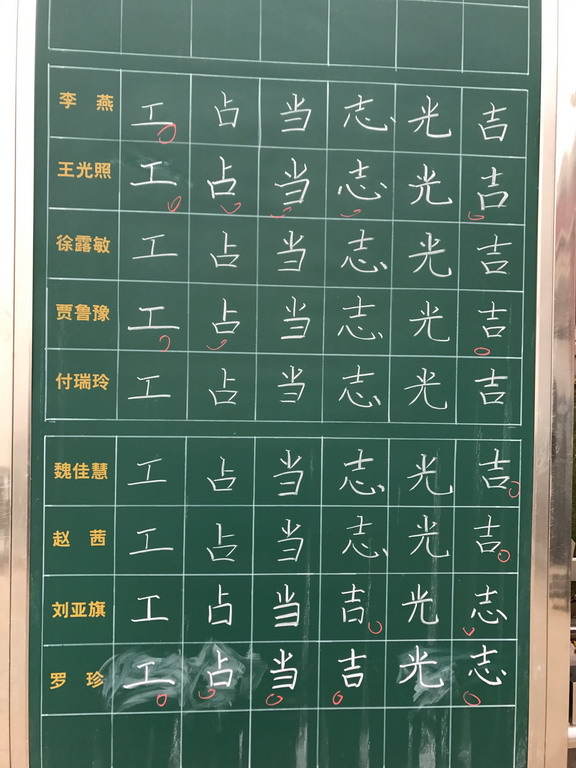 李 燕 工 占 当 志 光 吉
王光照 工 占 当 志 光 吉
徐露敏 工 占 当 志 光 吉
贾鲁豫 工 占 当 志 光 吉
付瑞玲 工 占 当 志 光 吉
魏佳慧 工 占 当 志 光 吉
赵 茜 工 占 当 志 光 吉
刘亚旗 工 占 当 吉 光 志
罗 珍 工 占 当 吉 光 志